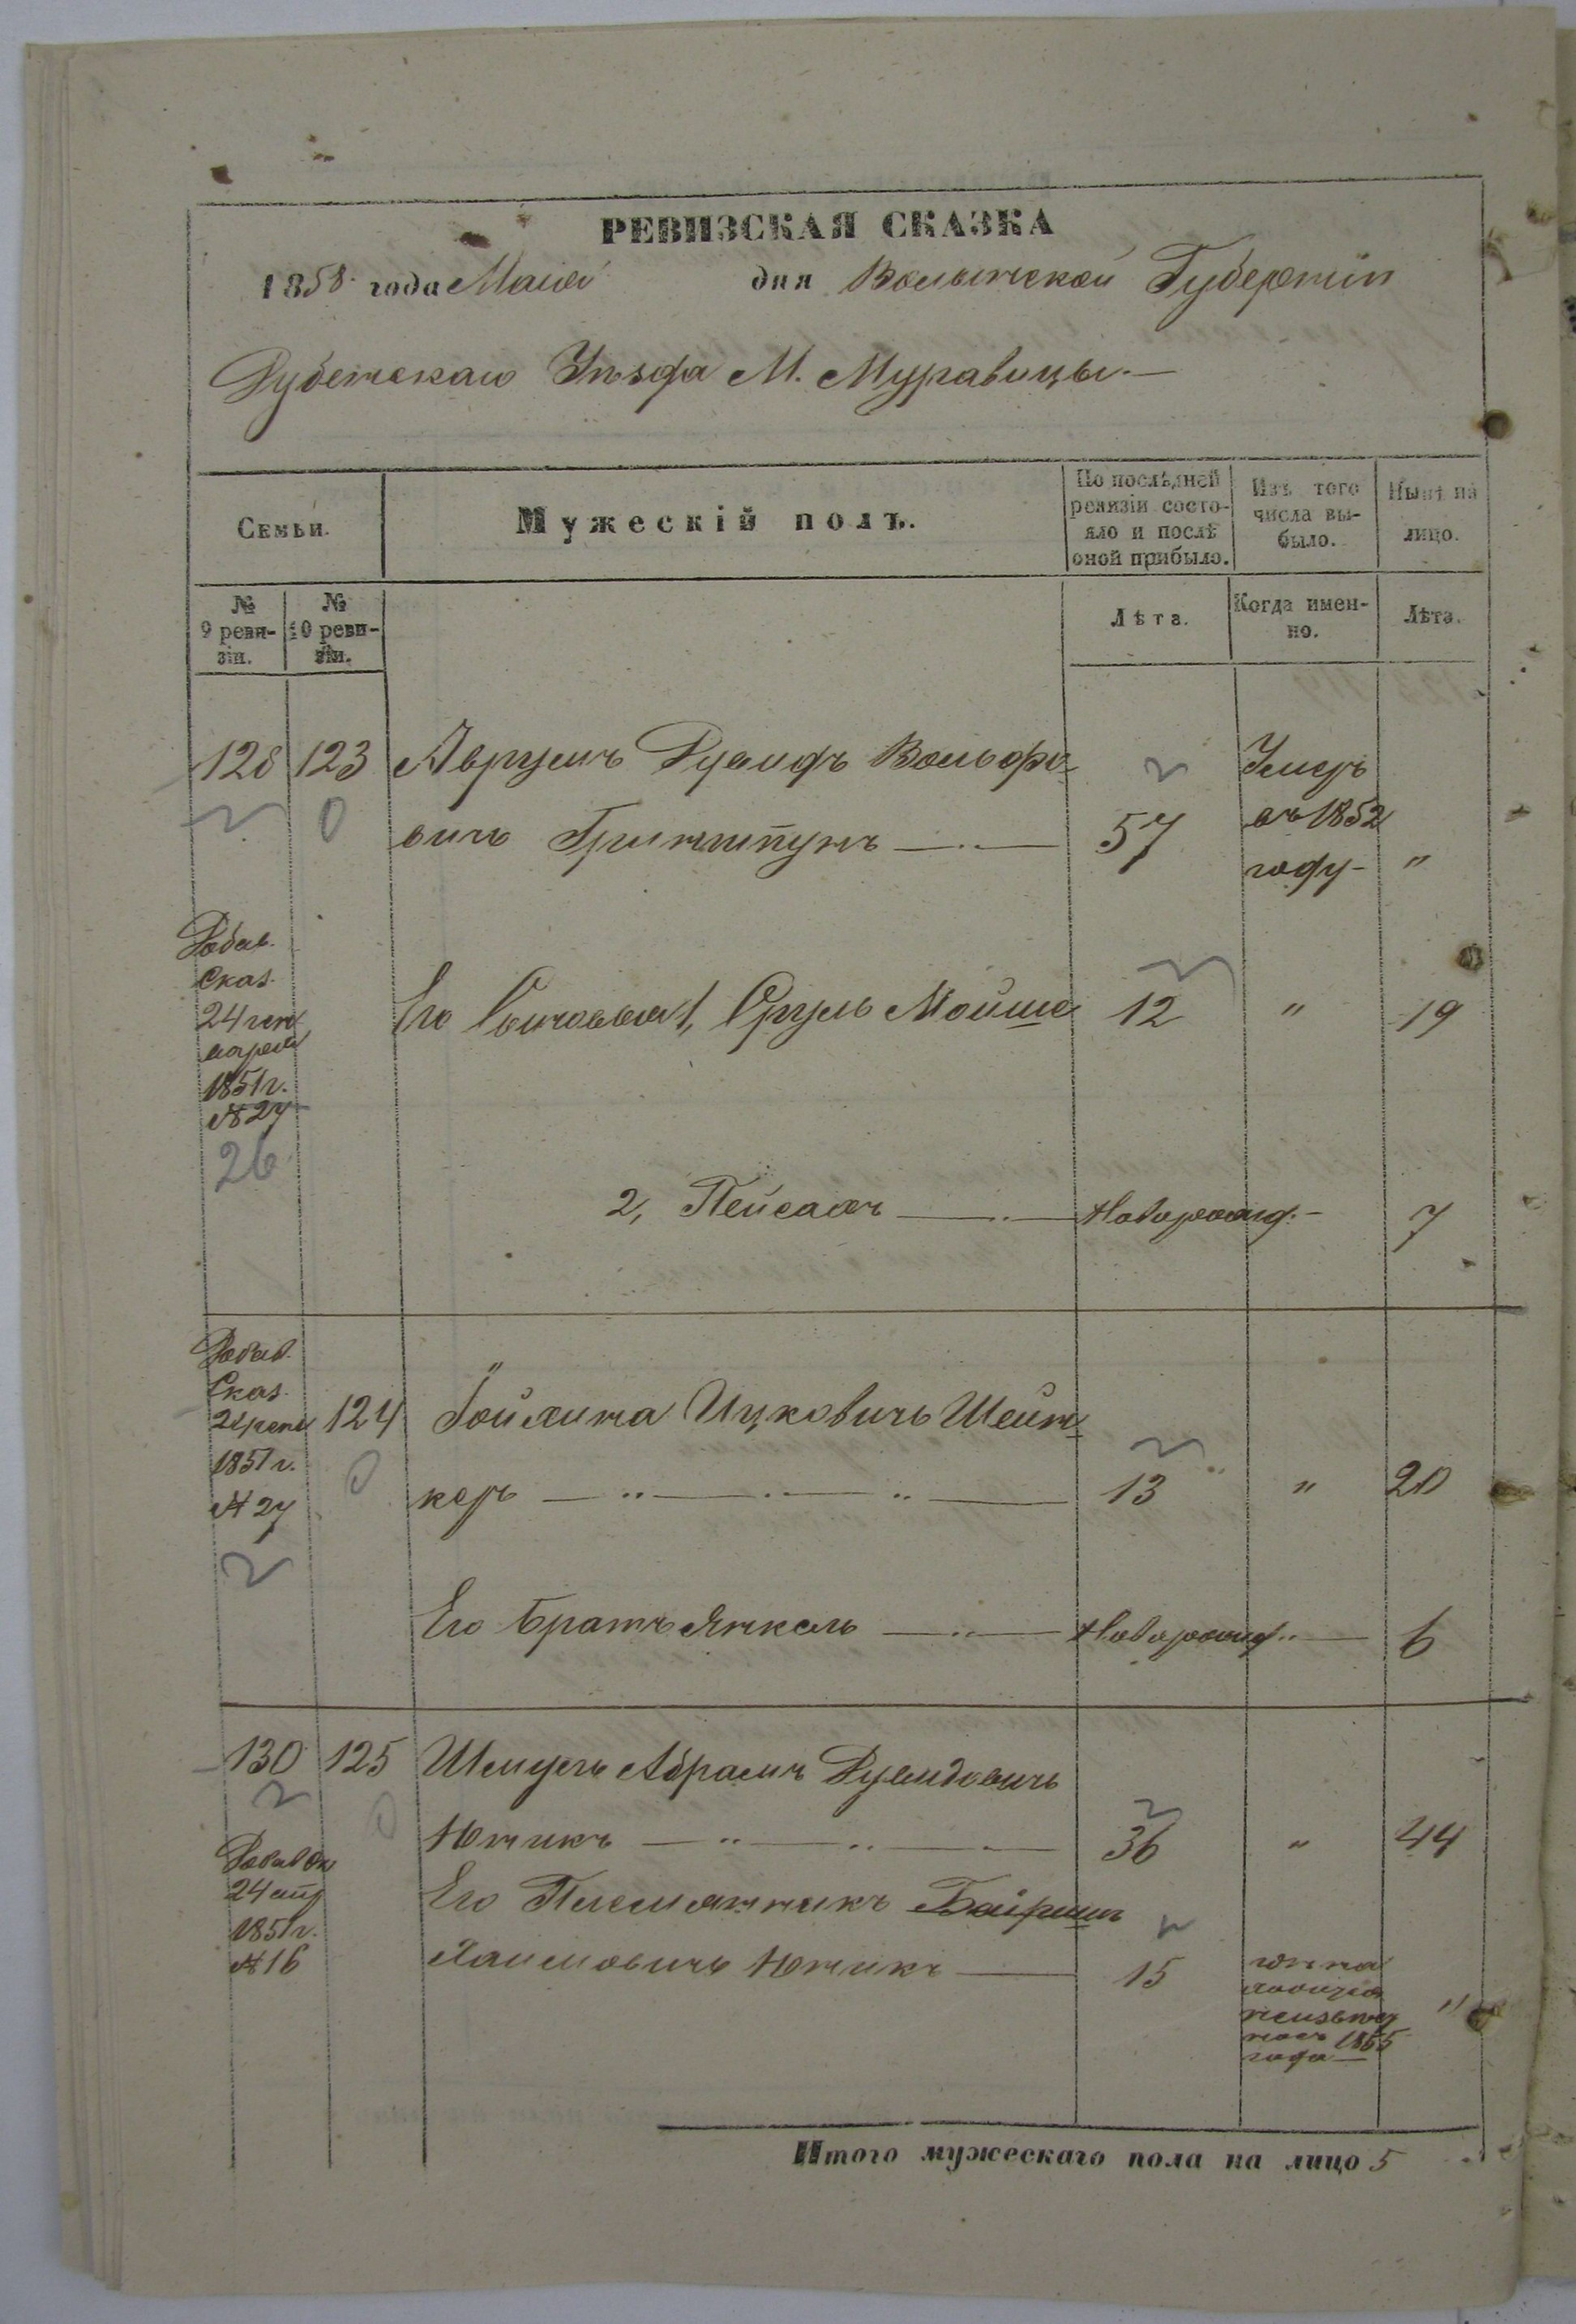 РЕВИЗСКАЯ СКАЗКА
1858 года Мая дня Волынской Губерніи
Дубенскаго Уѣзда М. Муравицы.—
Семьи.
Мужескій полъ.
По послѣдней ревизіи состояло и послѣ оной прибыло.
Изъ того числа выбыло.
Нынѣ на лицо.
№ 9 ревизіи.
№ 10 ревизіи.
Лѣта.
Когда именно.
Лѣта.
128 123 Аврумъ Дувидъ Вольфо- Умеръ
вичъ Гриншпунъ — 57 въ 1852
году — "
Добав.
Сказ.
24
апреля
1851 г.
№ 27
26
Его Сыновья 1, Сруль Мойше 12 " 19
2, Пейсахъ — Новорожд. — 7
Добав.
Сказ.
24
1851 г.
№ 27
124 " Гойхина Ицковичъ Шейн-
керъ — 13 " 20
Его Братъ Янкель — Новорожд. — 6
130 125 Шмуль Абрамъ Дувидовичъ
Ютикъ — 36 " 44
Добав Ск
24 апр
1851 г.
№ 16
Его Племянникъ Байришъ
Хаимовичъ Ютикъ — 15 "
1855
года —
Итого мужескаго пола на лицо 5